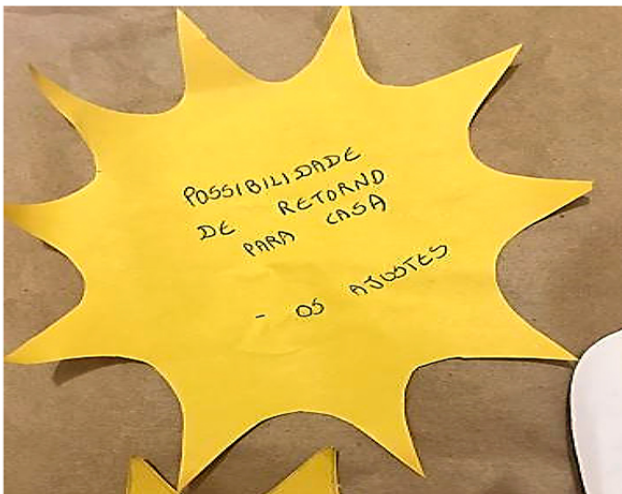 POSSIBILIDADE
DE RETORNO
PARA CASA
- OS AJUSTES